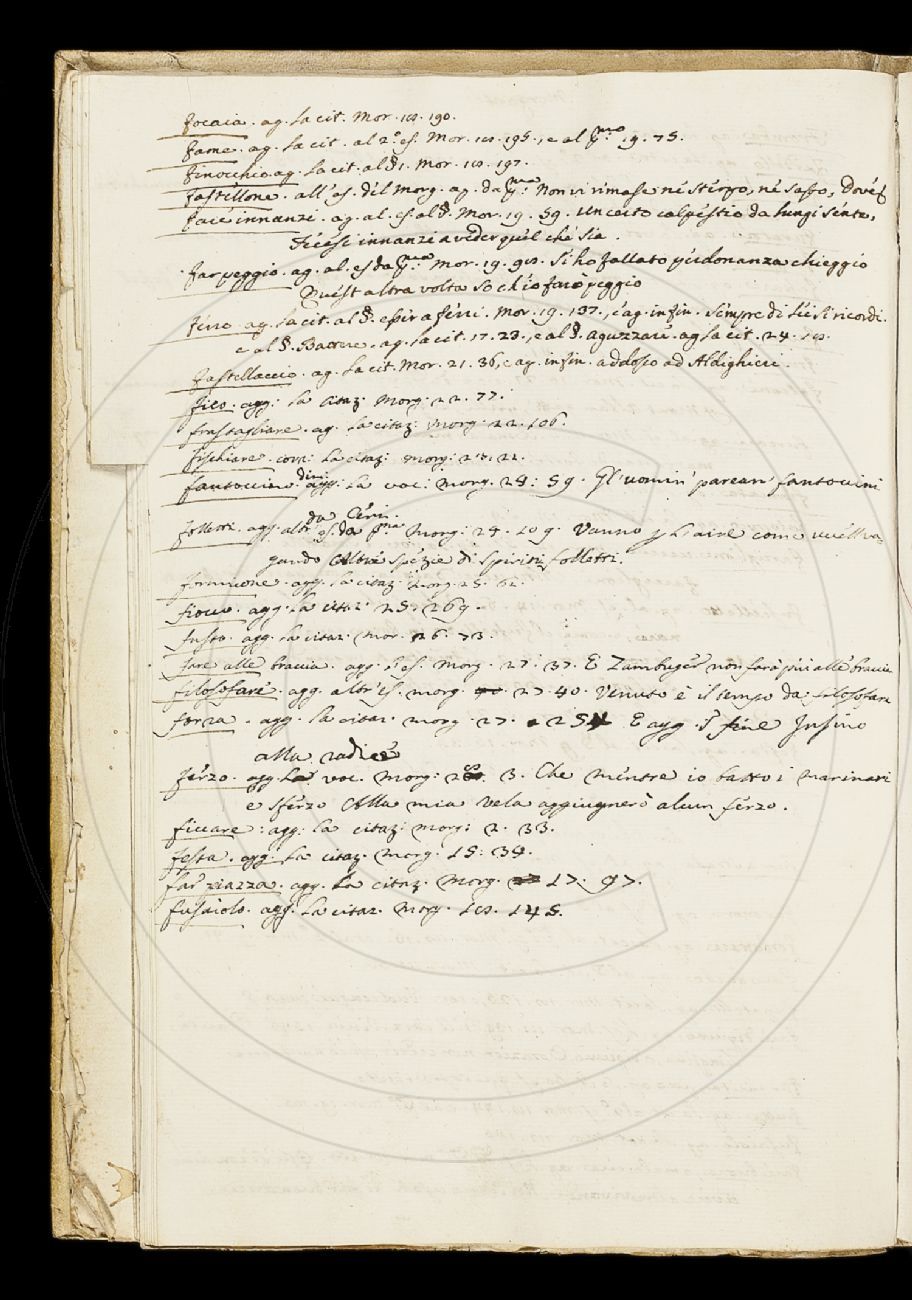 Focaia . ag. la cit. Mor. 18. 190.
Fame . ag. la cit. al 2.º es. Mor. 18. 195., e al pmo 19. 75.
Finocchio. ag. la cit. al §1. Mor. 18. 197.
Fastellone. all'es. del Morg. ag. da pma: Non vi rimase nè sterpo, nè sasso,
Face innanzi . ag. al. es. al §. Mor. 19. 59. Un certo calpestio da lungi sente,
Fecesi innanzi a veder quel che sia .
Far peggio . ag. al. es da pma Mor. 19. 98. Si ho fallato perdonanza chieggio
Quest altra volta so ch'io farò peggio
Ferro ag. la cit. al §. e spira ferri. Mor. 19. 137., e ag. in fin. Sempre di ricordi.
e al §. Battere . ag. la cit. 17. 23., e al §. aguzzare. ag la cit. 24. 18.
Fastellaccio . ag. la cit. Mor. 21. 36, e ag. in fin. addosso ad Aldighieri .
Fico. agg: la citaz: Morg: 22. 77.
Frastagliare . ag. la citaz: Morg: 22. 106.
Fischiare . corr: la citaz: morg: 22.
Fantoccino agg: la voc: Morg. 24: 59. Gl'uomin' parean' fantoccini
Folletti. agg. altr' es. da pma Morg: 24. 109. Vanno p l'aire come uccel va-
gando Altre spezie di spiriti folletti.
Formicone . agg. la citaz: Morg. 25. 62.
Fiocco . agg. la citaz: 25. 269.
Fusto. agg. la citaz: Mor. 26. 73.
Fare alle braccia. agg. l'es. Morg. 27. 37. E Zambuger non farà più alle braccia
Filosofare. agg. altr'es. morg. 27. 40. Venuto è il tempo da filosofare
Forza . agg. la citaz. morg. 27. 254 E agg. fine Insino
alla radice
Ferzo. agg. la voc. morg: 3. Che mentre io batto i marinari
e sferzo Alla mia vela aggiugnerò alcun ferzo.
Ficcare : agg: la citaz: morg: 2. 33.
Festa . agg. la citaz. Morg. 15: 34.
Far piazza . agg. la citaz. Morg. 17. 97.
Fusaiolo. agg. la citaz. Morg. 18. 145.